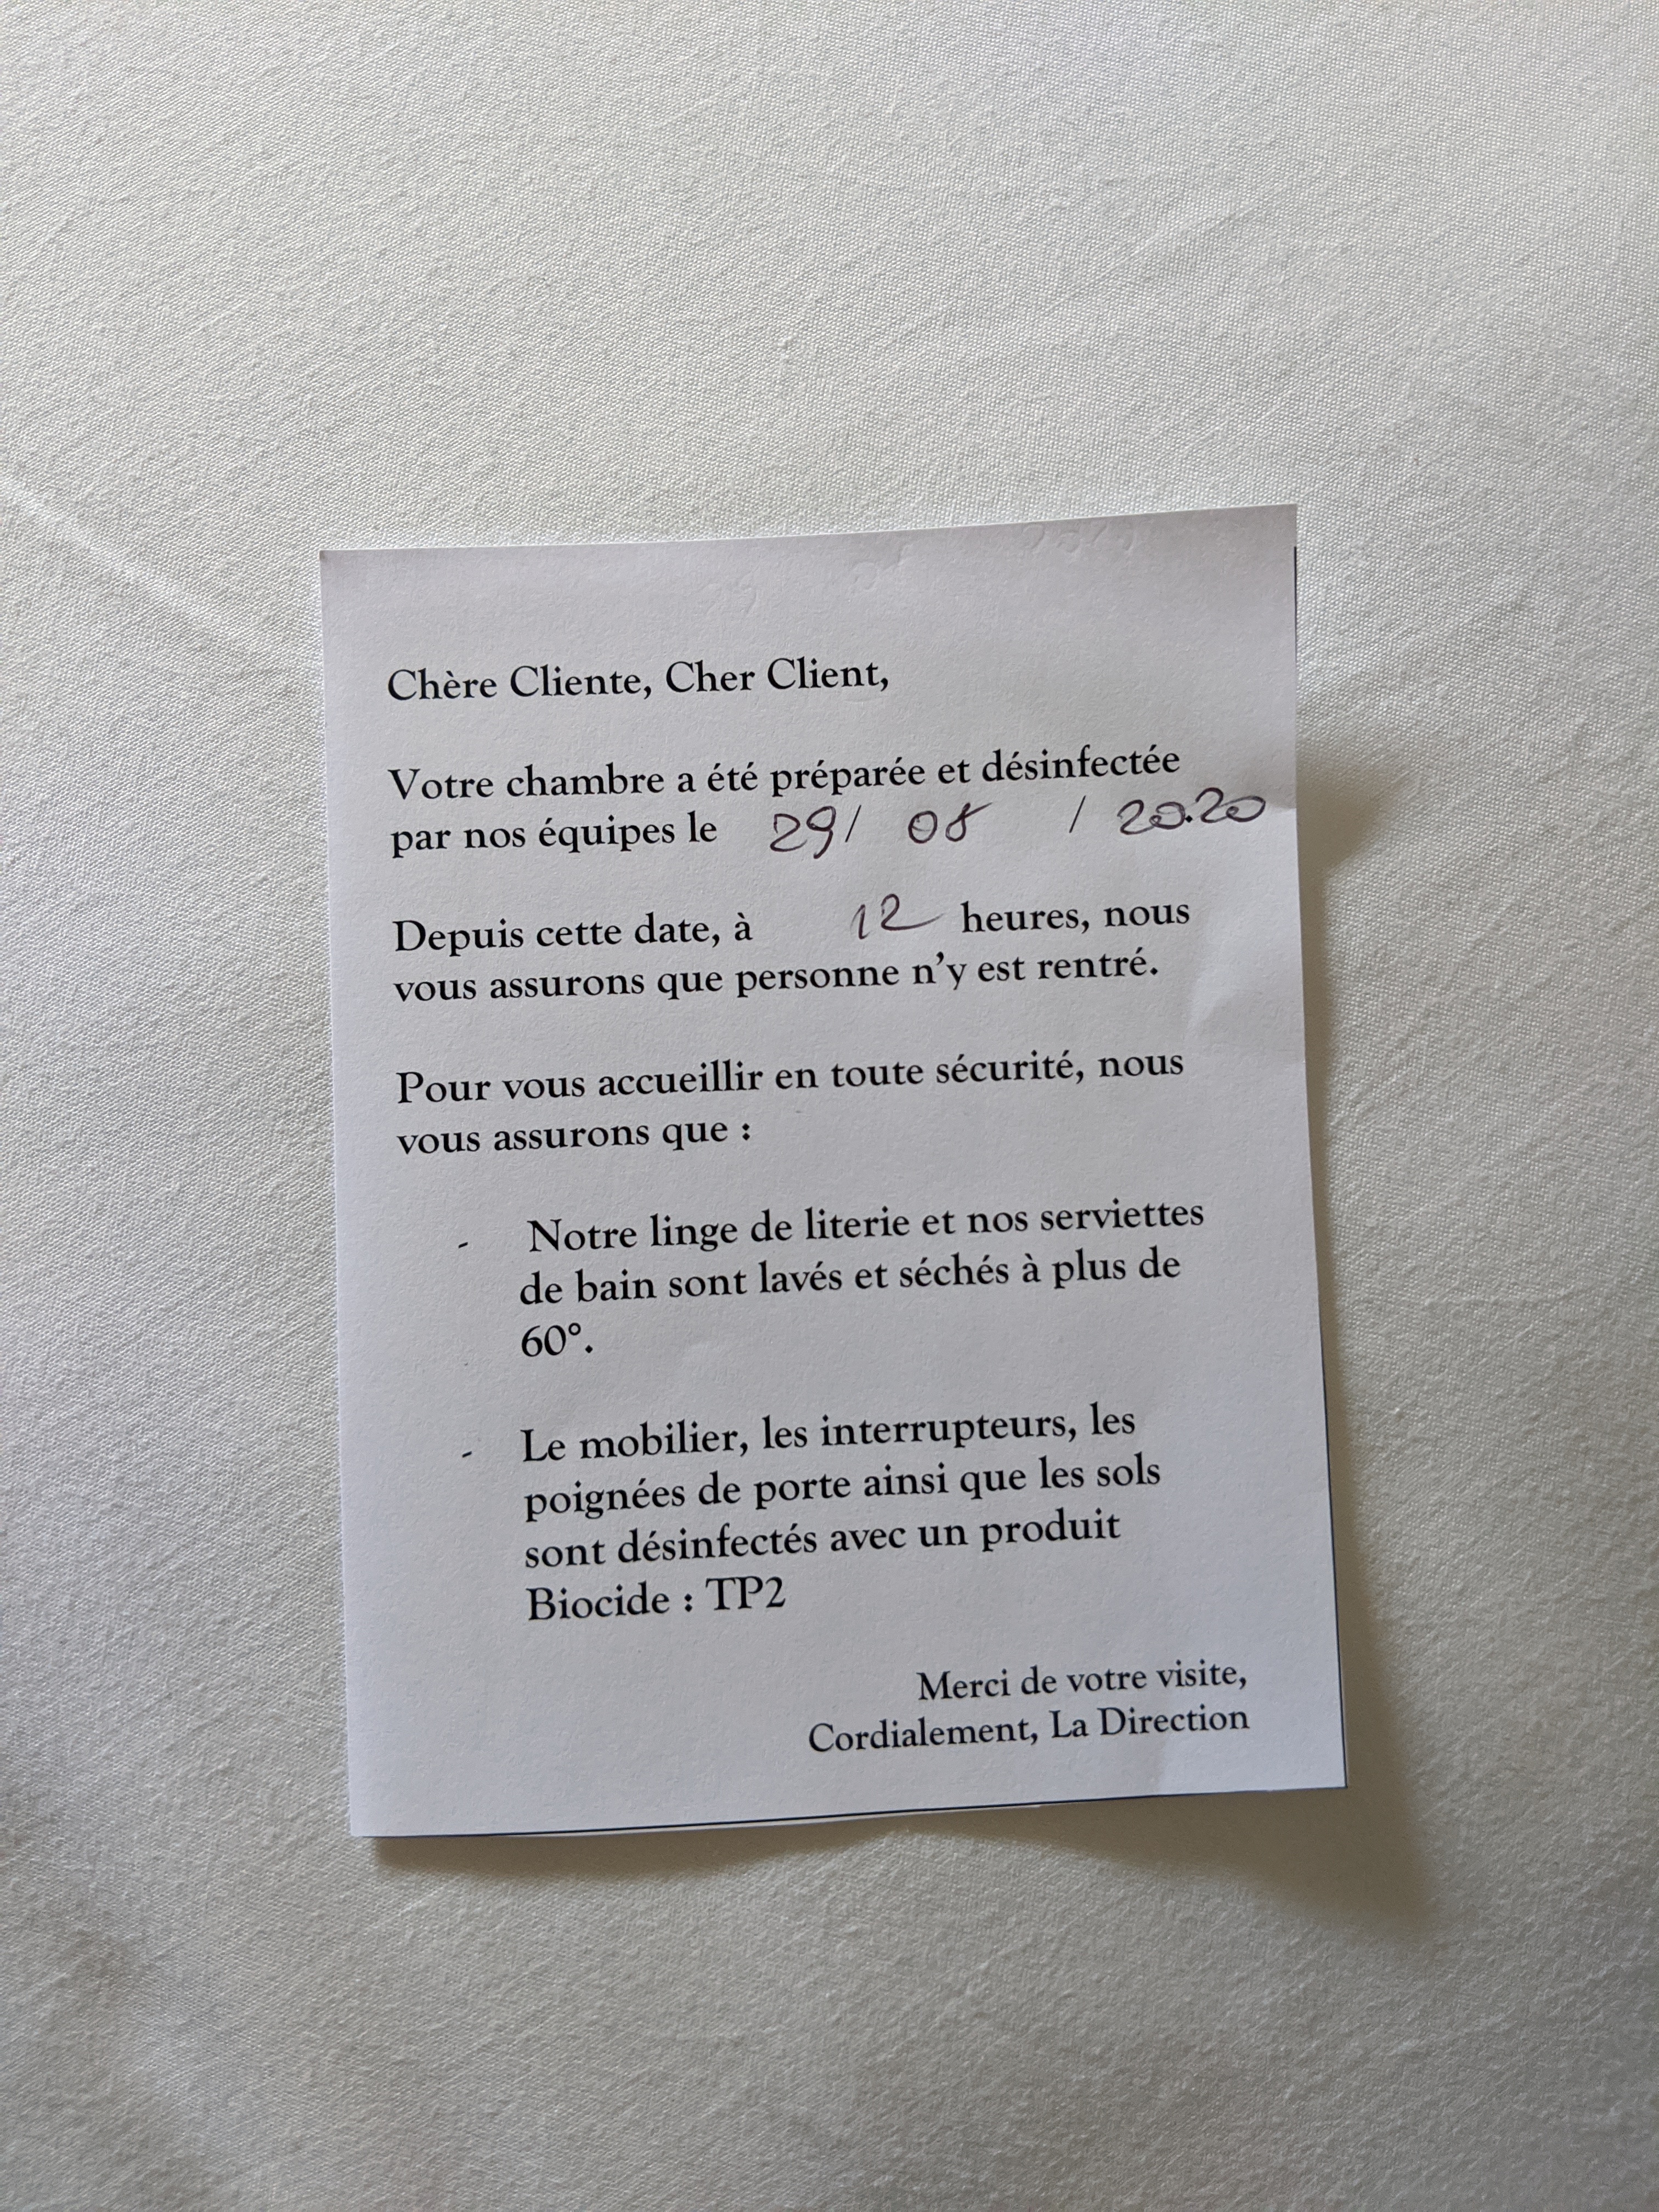 Chère Cliente, Cher Client,
Votre chambre a été préparée et désinfectée
par nos équipes le 29/ 08 / 2020
Depuis cette date, à 12 heures, nous
vous assurons que personne n'y est rentré.
Pour vous accueillir en toute sécurité, nous
vous assurons que :
- Notre linge de literie et nos serviettes
de bain sont lavés et séchés à plus de
60°.
- Le mobilier, les interrupteurs, les
poignées de porte ainsi que les sols
sont désinfectés avec un produit
Biocide : TP2
Merci de votre visite,
Cordialement, La Direction